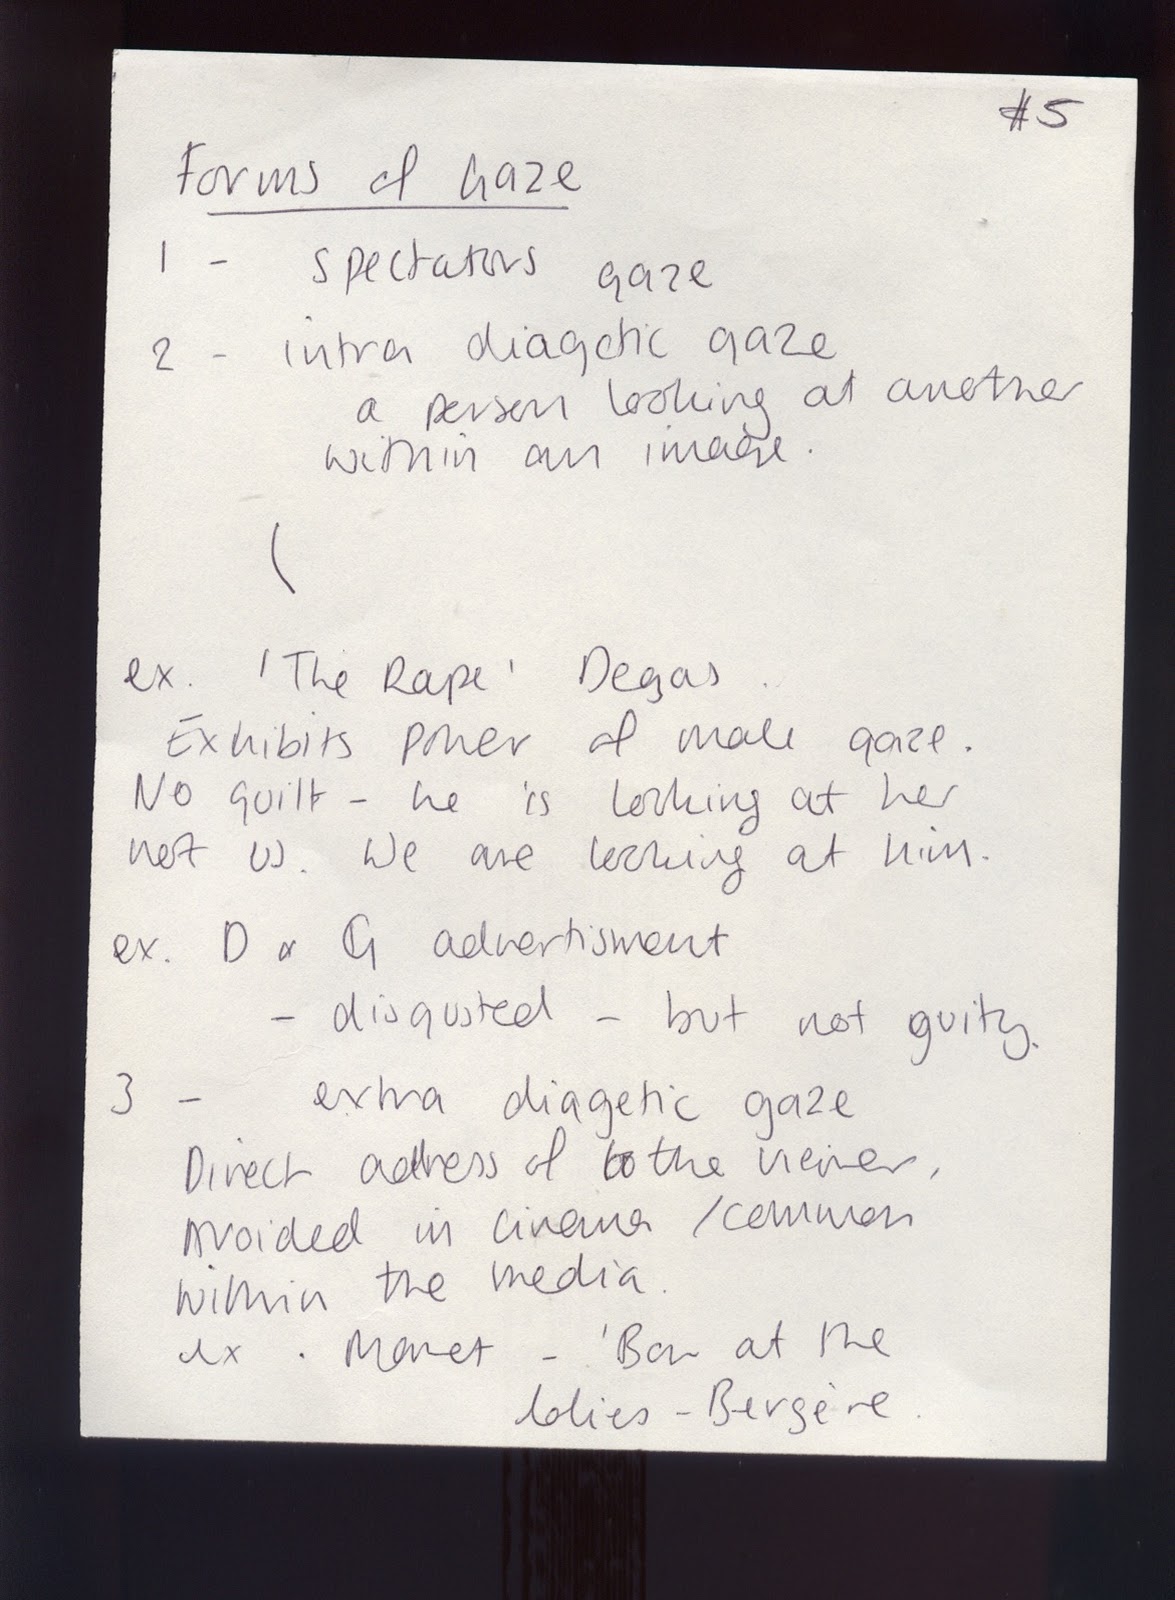 #5
Forms of Gaze
1 - spectators gaze
2 - intra diagetic gaze
a person looking at another
within an image.
(
ex. 'The Rape' Degas.
Exhibits power of male gaze.
No guilt - he is looking at her
not us. We are looking at him.
ex. D & G advertisment
- disgusted - but not guity.
3 - extra diagetic gaze
Direct address of to the viewer,
Avoided in cinema / common
within the media.
ex. Manet - 'Bar at the
folies - Bergère.